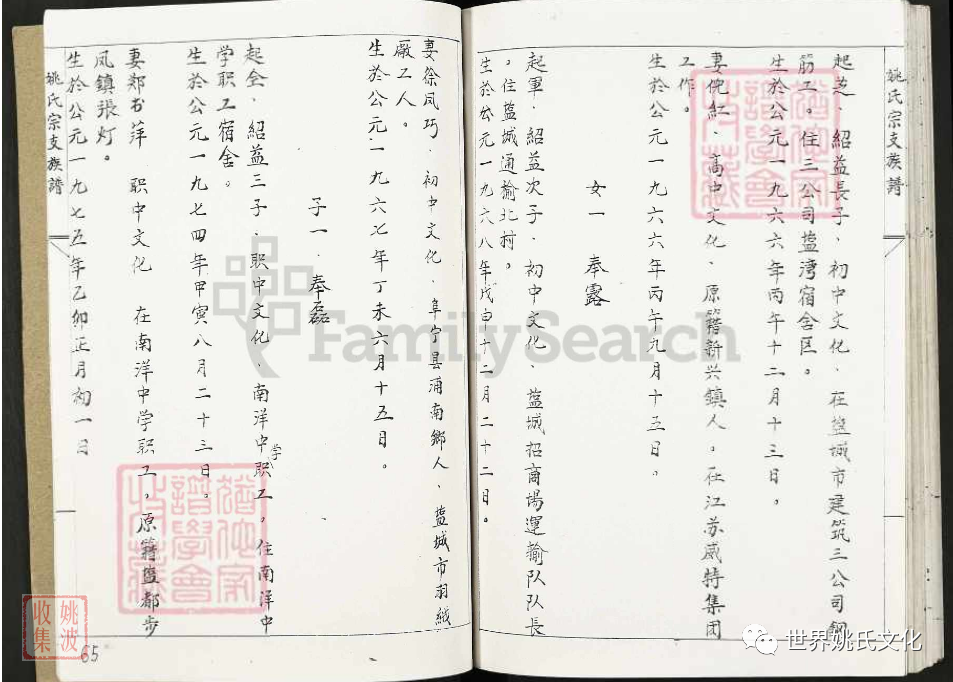 姚氏宗支族譜
起芝、紹益長子、初中文化、在盐城市建筑三公司鋼
筋工。住三公司盐湾宿舍区。
生於公元一九六六年丙午十二月十三日。
妻倪紅、高中文化、原籍新兴鎮人。在江苏威特集团
工作。
生於公元一九六六年丙午九月十五日。
女一 奉露
起軍、紹益次子、初中文化、盐城招商場運輸队队長
。住盐城通榆北村。
生於公元一九六八年戊申十二月二十二日。
妻徐凤巧、初中文化、阜宁县浦南鄉人、盐城市羽絨
廠工人。
生於公元一九六七年丁未六月十五日。
子一、奉磊
起全、紹益三子、职中文化、南洋中学职工。住南洋中
学职工宿舍。
生於公元一九七四年甲寅八月二十三日。
妻郑书萍 职中文化 在南洋中学职工。原籍盐都步
凤鎮張灯。
生於公元一九七五年乙卯正月初一日
姚氏宗支族譜
65
FamilySearch
姚波
收集
世界姚氏文化